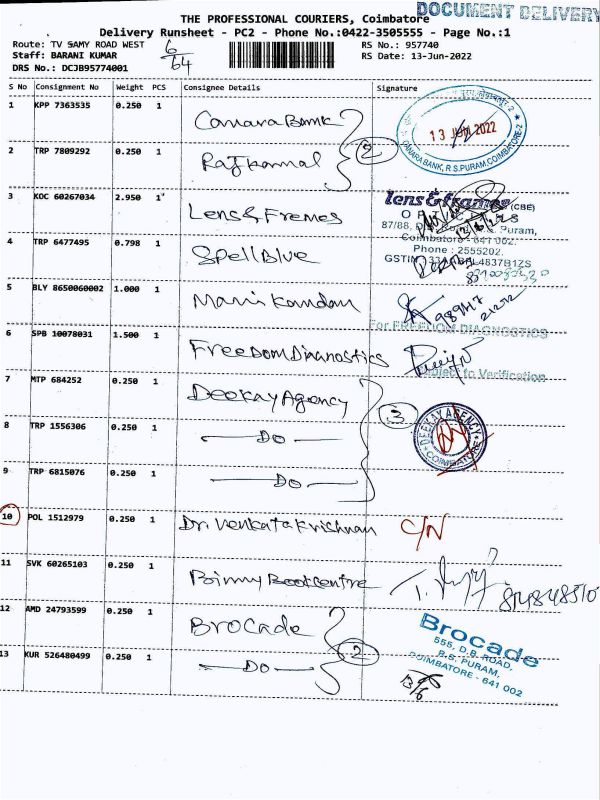 DOCUMENT DELIVERY
THE PROFESSIONAL COURIERS, Coimbatore
Delivery Runsheet - PC2 - Phone No.:0422-3505555 - Page No.:1
Route: TV SAMY ROAD WEST
6/64
RS No.: 957740
Staff: BARANI KUMAR
RS Date: 13-Jun-2022
DRS No.: DCJB95774001
S No Consignment No Weight PCS Consignee Details Signature
1 KPP 7363535 0.250 1 Canara Bank
13 JUN 2022
CANARA BANK, R.S.PURAM, COIMBATORE-2
2 TRP 7809292 0.250 1 Rajkamal
2
3 KOC 60267034 2.950 1 Lens & Fremes
lens & frames (CBE)
87/88, Puram,
Coimbatore - 641 002.
Phone : 2555202.
4 TRP 6477495 0.798 1 Spell Blue
GSTIN
5 BLY 8650060002 1.000 1 Mani Kandan
For FREEDOM DIAGNOSTICS
6 SPB 10078031 1.500 1 Freedom Dianostics
Subject to Verification
7 MTP 684252 0.250 1 Deekay Agency
8 TRP 1556306 0.250 1 — Do —
3
DEEKAY AGENCY
COIMBATORE
9 TRP 6815076 0.250 1 — Do —
10 POL 1512979 0.250 1 Dr. Venkata Krishnan C/N
11 SVK 60265103 0.250 1 Boinny Bootcentre
12 AMD 24793599 0.250 1 Brocade
Brocade
555, D.B. ROAD,
R.S. PURAM,
COIMBATORE - 641 002
13 KUR 526480499 0.250 1 — Do —
2
13/6